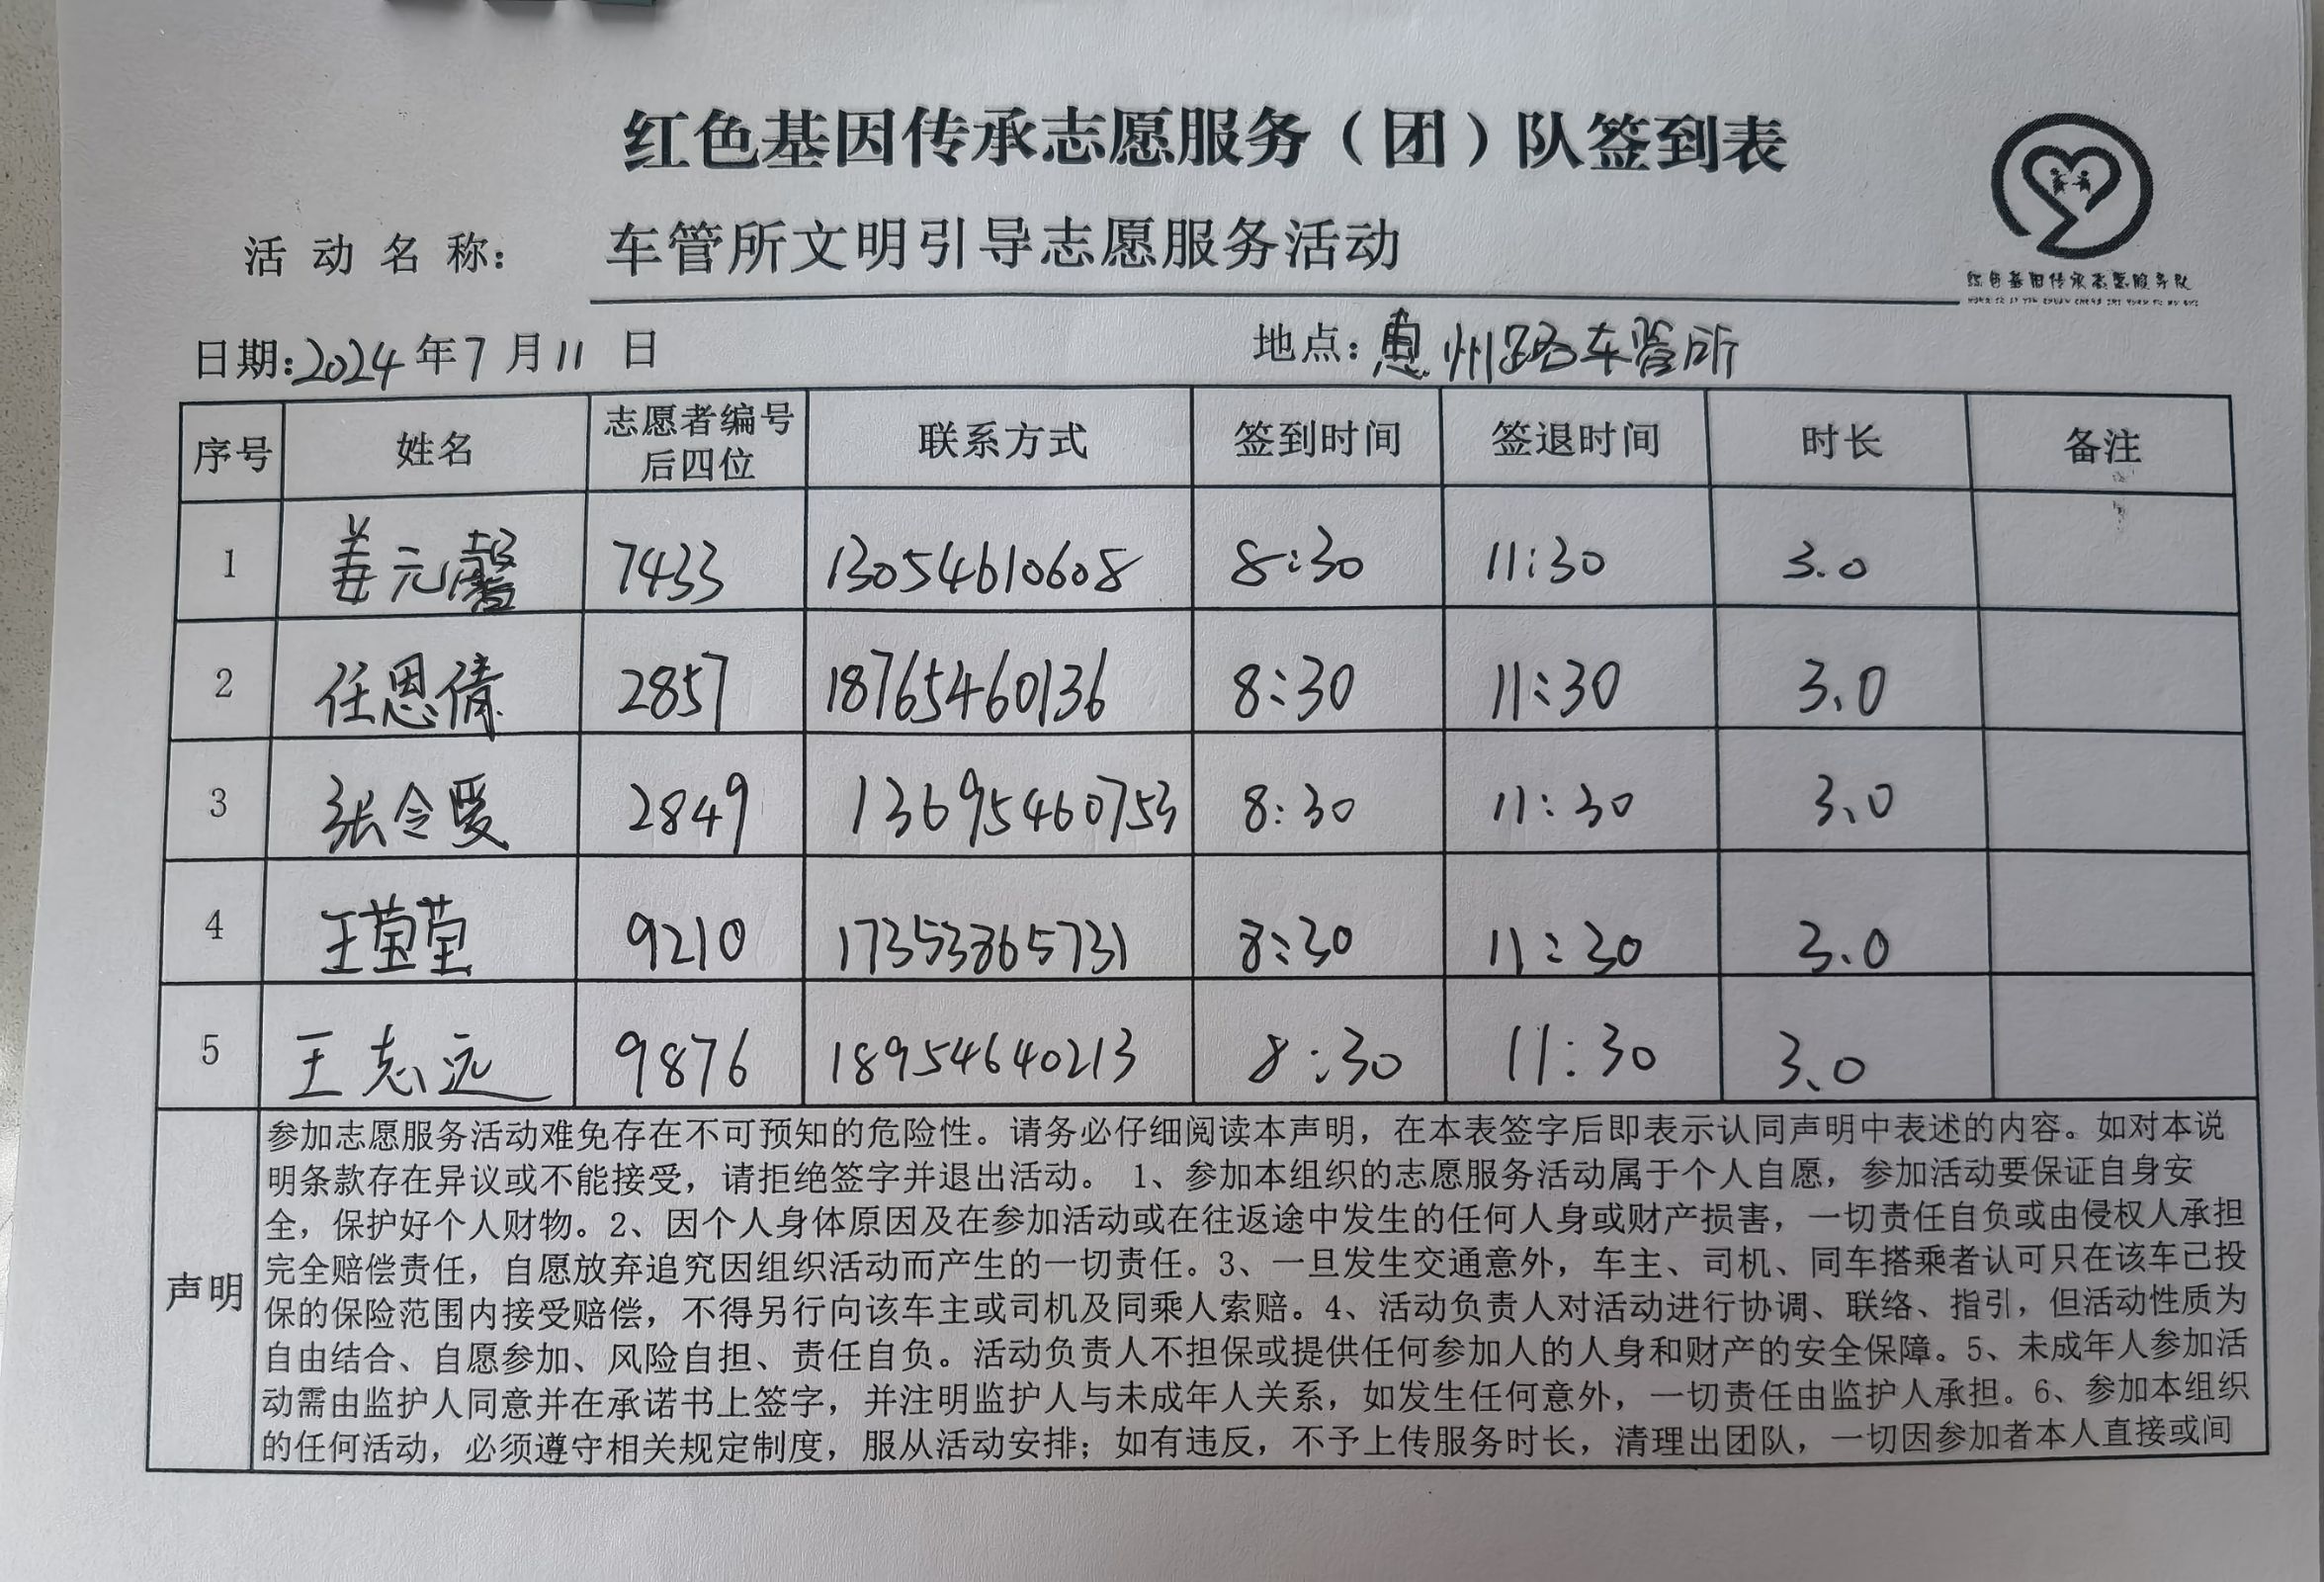 红色基因传承志愿服务（团）队签到表
活动名称： 车管所文明引导志愿服务活动
红色基因传承志愿服务队
日期:2024年7月11日 地点:惠州路车管所
序号 姓名 志愿者编号后四位 联系方式 签到时间 签退时间 时长 备注
1 姜元馨 7433 13054610608 8:30 11:30 3.0
2 任恩倩 2857 18765460136 8:30 11:30 3.0
3 张令爱 2849 13695460753 8:30 11:30 3.0
4 王莹莹 9210 17353865731 8:30 11:30 3.0
5 王志远 9876 18954640213 8:30 11:30 3.0
声明
参加志愿服务活动难免存在不可预知的危险性。请务必仔细阅读本声明，在本表签字后即表示认同声明中表述的内容。如对本说
明条款存在异议或不能接受，请拒绝签字并退出活动。 1、参加本组织的志愿服务活动属于个人自愿，参加活动要保证自身安
全，保护好个人财物。2、因个人身体原因及在参加活动或在往返途中发生的任何人身或财产损害，一切责任自负或由侵权人承担
完全赔偿责任，自愿放弃追究因组织活动而产生的一切责任。3、一旦发生交通意外，车主、司机、同车搭乘者认可只在该车已投
保的保险范围内接受赔偿，不得另行向该车主或司机及同乘人索赔。4、活动负责人对活动进行协调、联络、指引，但活动性质为
自由结合、自愿参加、风险自担、责任自负。活动负责人不担保或提供任何参加人的人身和财产的安全保障。5、未成年人参加活
动需由监护人同意并在承诺书上签字，并注明监护人与未成年人关系，如发生任何意外，一切责任由监护人承担。6、参加本组织
的任何活动，必须遵守相关规定制度，服从活动安排；如有违反，不予上传服务时长，清理出团队，一切因参加者本人直接或间